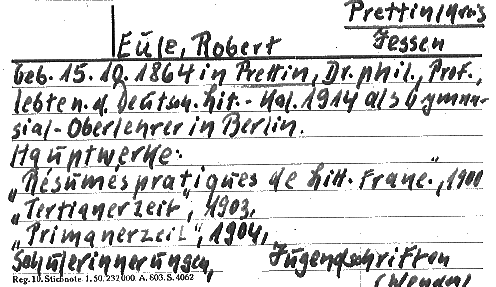 Prettin/Kreis
Jessen
Eule, Robert
Geb. 15.10.1864 in Prettin, Dr. phil., Prof.,
lebte n. d. Deutsch. Lit.-Kal. 1914 als Gymna-
sial-Oberlehrer in Berlin.
Hauptwerke:
„Résumés pratiques de litt. franc.", 1900
„Tertianerzeit", 1903,
„Primanerzeit", 1904,
Schülerinnerungen, Jugendschriften
Reg. 10. Stichnote 1. 50. 232000. A. 803. S. 4062